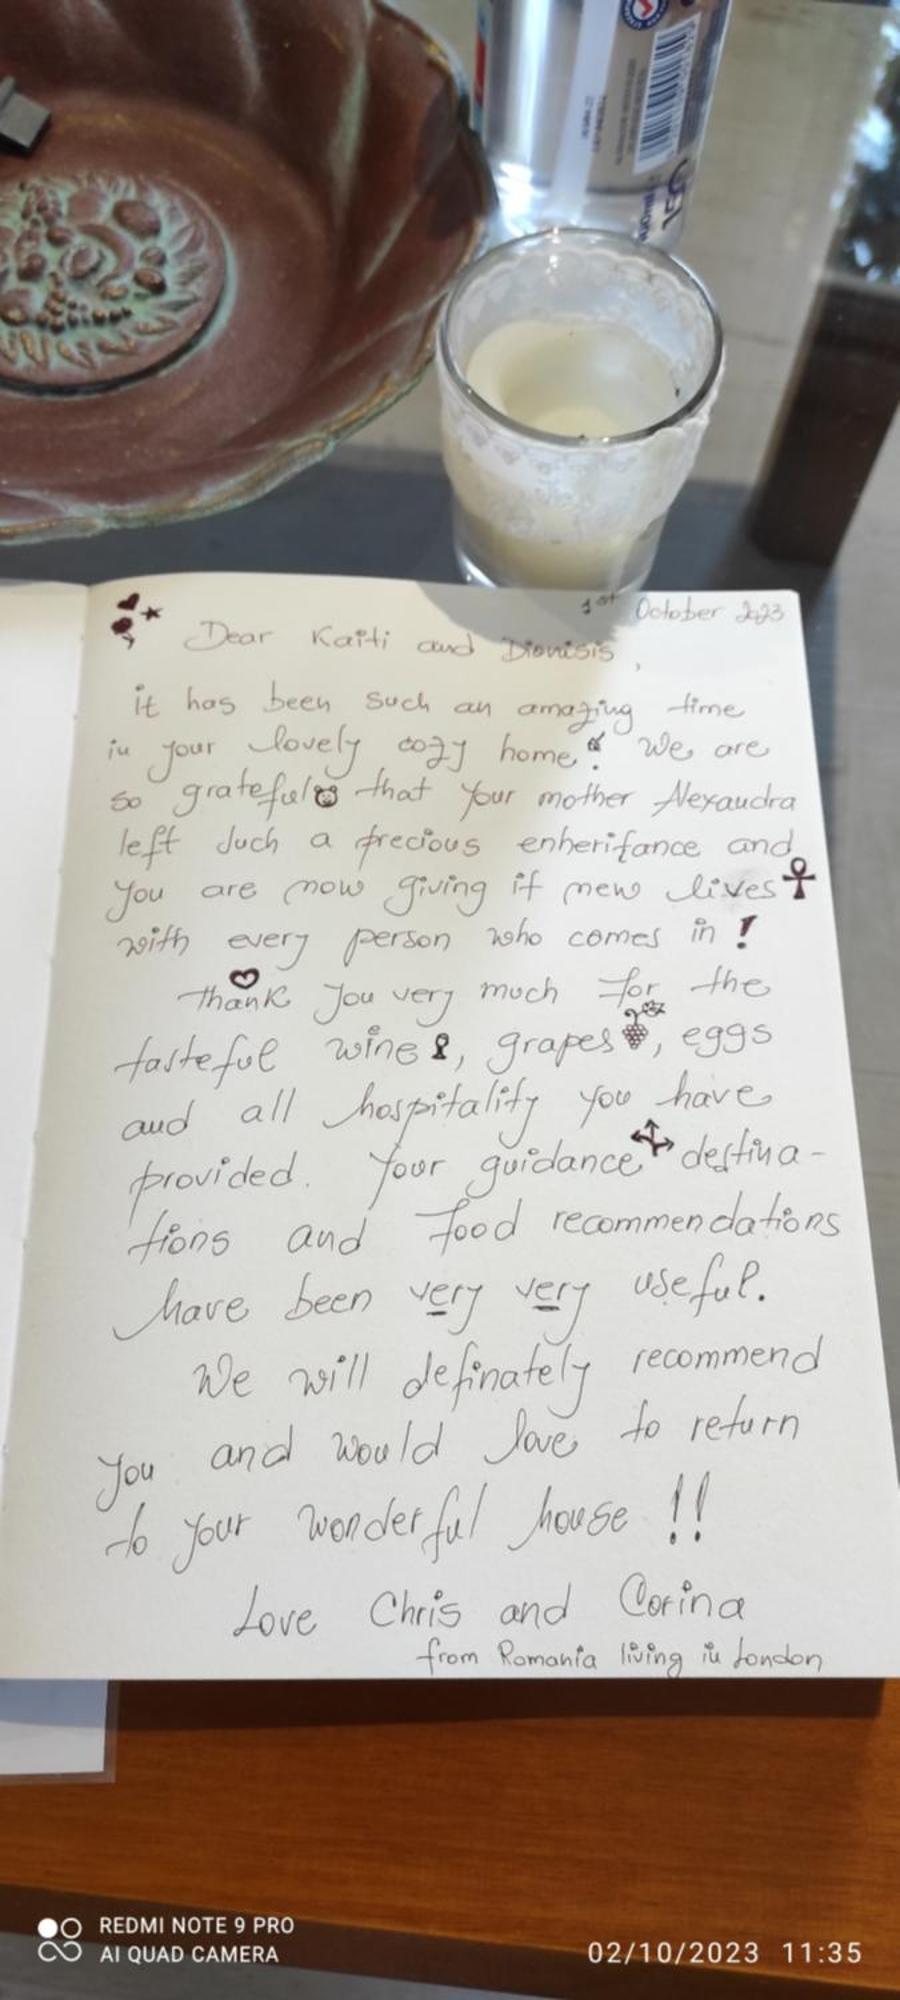 1st October 2023
Dear Kaiti and Dionisis,
it has been such an amazing time
in your lovely cozy home! We are
so grateful that your mother Alexandra
left such a precious enheritance and
you are now giving it new lives
with every person who comes in!
Thank you very much for the
tasteful wine, grapes, eggs
and all hospitality you have
provided. Your guidance destina-
tions and food recommendations
have been very very useful.
We will definately recommend
you and would love to return
to your wonderful house!!
Love Chris and Corina
from Romania living in London
REDMI NOTE 9 PRO
AI QUAD CAMERA
02/10/2023 11:35